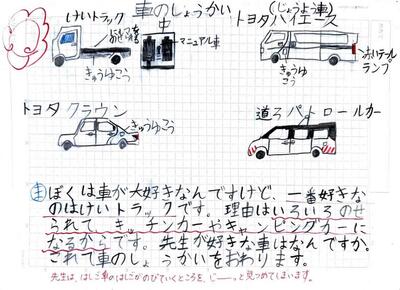 車のしょうかい
けいトラック
中
マニュアル車
きゅうゆこう
トヨタハイエース
(じょうよ連)
きゅうゆこう
テールランプ
トヨタクラウン
きゅうゆこう
道ろパトロールカー
ぼくは車が大好きなんですけど、一番好きな
のはけいトラックです。理由はいろいろのせ
られて、キッチンカーやキャンピングカーに
なるからです。先生が好きな車はなんですか。
これで車のしょうかいをおわります。
先生は、はしご車のはしごがのびていくところを、じーっと見つめてしまいます。